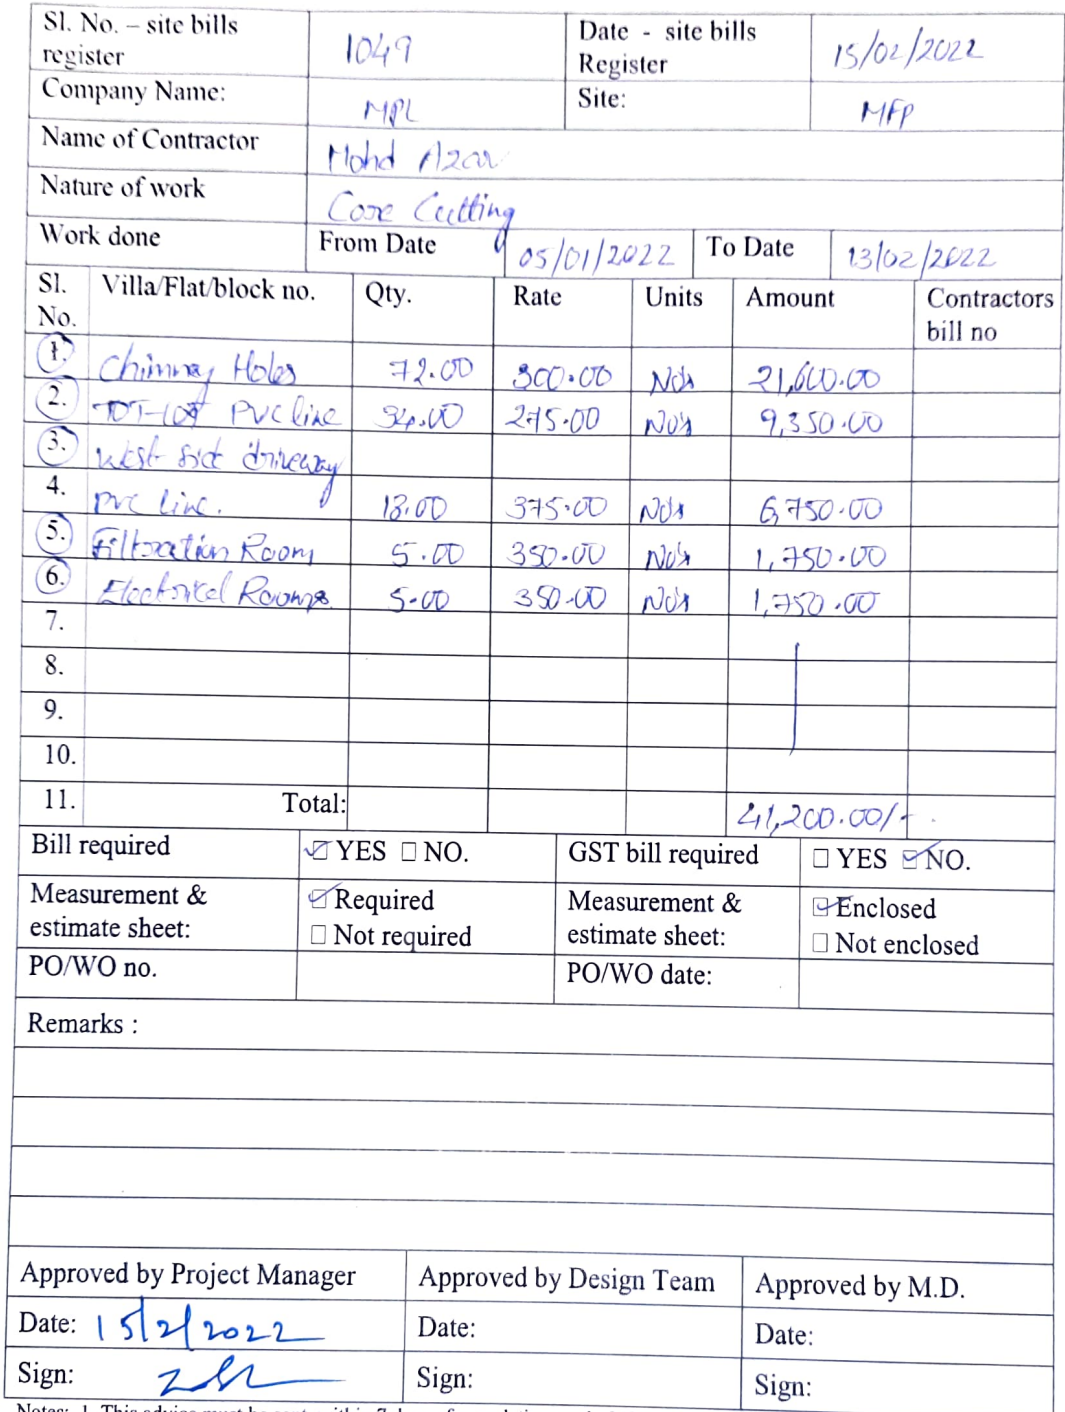 Sl. No. – site bills register 1049 Date - site bills Register 15/02/2022
Company Name: MPL Site: MFP
Name of Contractor Mohd Azar
Nature of work Core Cutting
Work done From Date 05/01/2022 To Date 13/02/2022
Sl. No. Villa/Flat/block no. Qty. Rate Units Amount Contractors bill no
1. Chimney Holes 72.00 300.00 No's 21,600.00
2. TOT-lot PVC line 34.00 275.00 No's 9,350.00
3. West side driveway
4. PVC line. 18.00 375.00 No's 6,750.00
5. Filtration Room 5.00 350.00 No's 1,750.00
6. Electrical Rooms 5.00 350.00 No's 1,750.00
7.
8.
9.
10.
11. Total: 41,200.00/-
Bill required YES NO. GST bill required YES NO.
Measurement & estimate sheet: Required Not required Measurement & estimate sheet: Enclosed Not enclosed
PO/WO no. PO/WO date:
Remarks :
Approved by Project Manager Approved by Design Team Approved by M.D.
Date: 15/2/2022 Date: Date:
Sign: Sign: Sign: